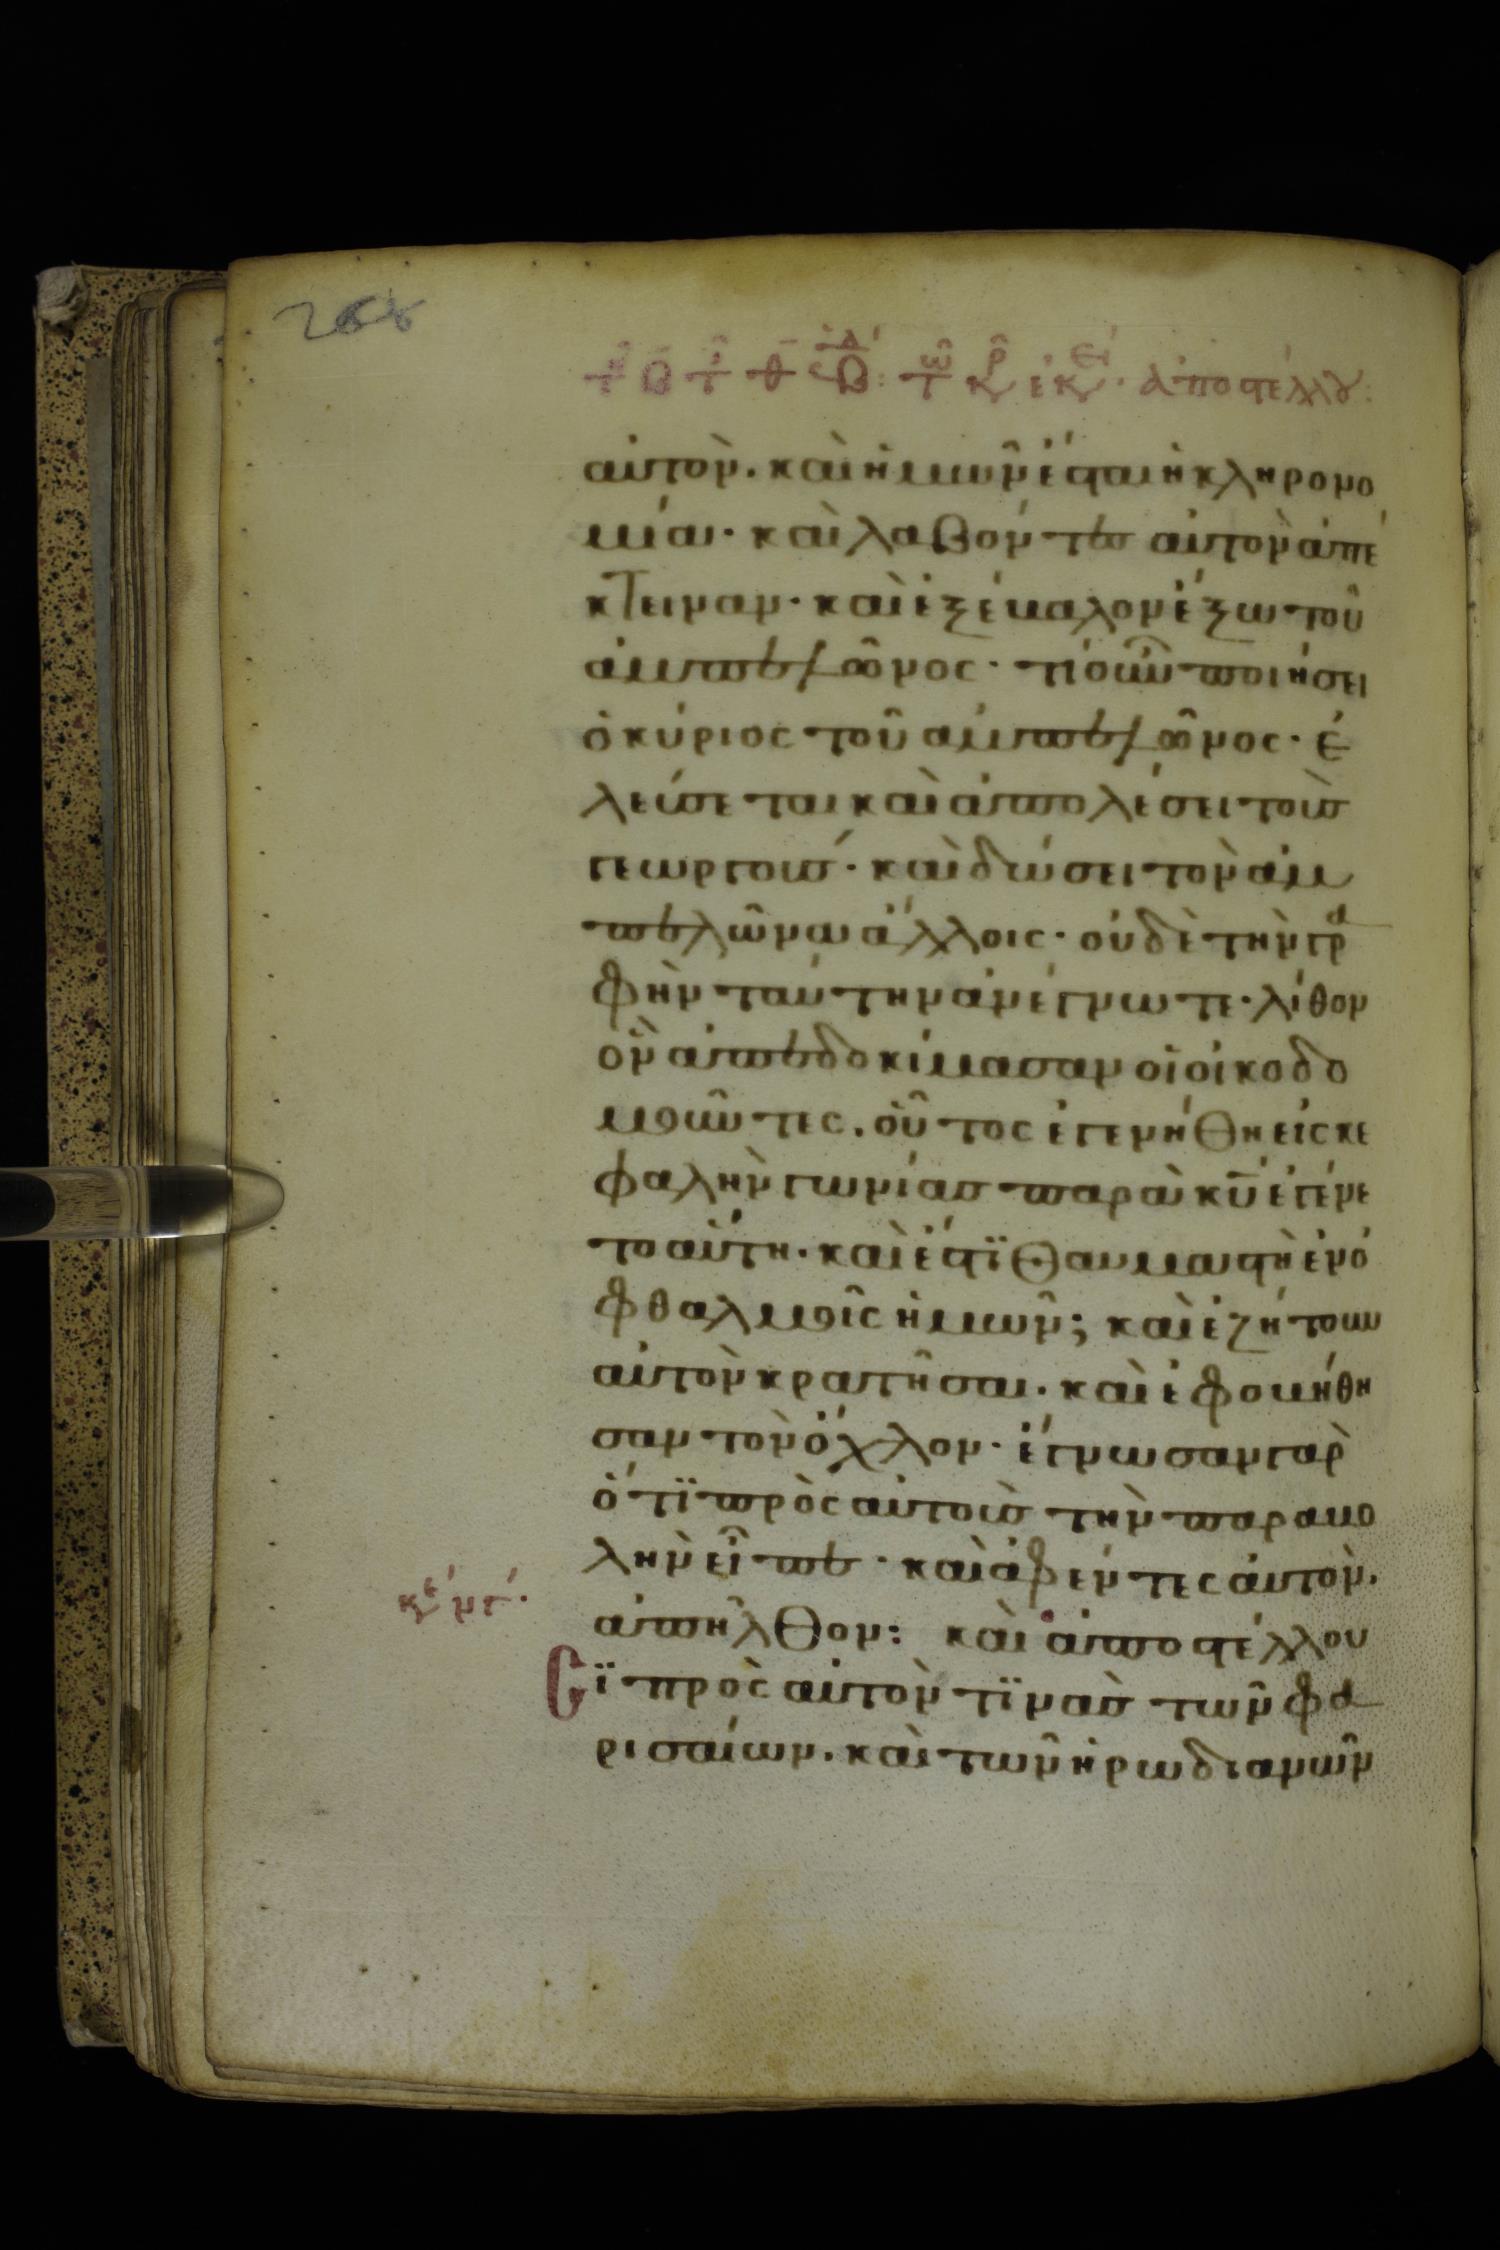 αὐτὸν. καὶ ἡμῶν ἔσται ἡ κληρονο
μία· καὶ λαβόντες αὐτὸν ἀπέ
κτειναν· καὶ ἐξέβαλον ἔξω τοῦ
ἀμπελῶνος· τί οὖν ποιήσει
ὁ κύριος τοῦ ἀμπελῶνος· ἐ
λεύσεται καὶ ἀπολέσει τοὺς
γεωργούς· καὶ δώσει τὸν ἀμ
πελῶνα ἄλλοις· οὐδὲ τὴν γρα
φὴν ταύτην ἀνέγνωτε· λίθον
ὃν ἀπεδοκίμασαν οἱ οἰκοδο
μοῦντες. οὗτος ἐγενήθη εἰς κε
φαλὴν γωνίας παρὰ κυ ἐγένε
το αὕτη. καὶ ἔστϊ θαυμαστὴ ἐν ὀ
φθαλμοῖς ἡμῶν; καὶ ἐζήτουν
αὐτὸν κρατῆσαι. καὶ ἐφοβήθη
σαν τὸν ὄχλον· ἔγνωσαν γὰρ
ὅτϊ πρὸς αὐτοὺς τὴν παραβο
λὴν εἶπε· καὶ ἀφέντες αὐτὸν.
ἀπῆλθον: καὶ ἀποστέλλου
Cϊ πρὸς αὐτὸν τϊνὰς τῶν φα
ρισαίων. καὶ τῶν ἡρωδιανῶν